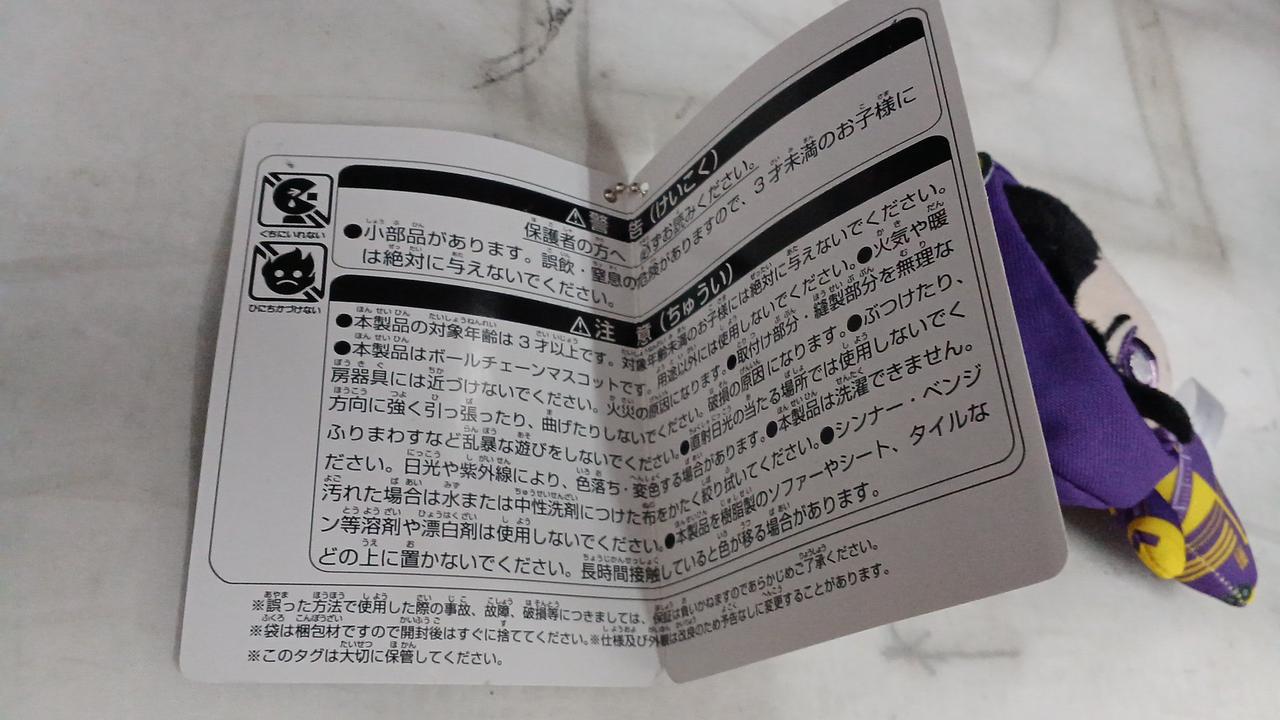 ぐちにいれない
ひにちかづけない
⚠警告(けいこく)
保護者の方へ 必ずお読みください。
●小部品があります。誤飲・窒息の危険がありますので、3才未満のお子様に
は絶対に与えないでください。
⚠注意(ちゅうい)
●本製品の対象年齢は3才以上です。対象年齢未満のお子様には絶対に与えないでください。
●本製品はボールチェーンマスコットです。用途以外には使用しないでください。●火気や暖
房器具には近づけないでください。火災の原因になります。●取付け部分・縫製部分を無理な
方向に強く引っ張ったり、曲げたりしないでください。破損の原因になります。●ぶつけたり、
ふりまわすなど乱暴な遊びをしないでください。●直射日光の当たる場所では使用しないでく
ださい。日光や紫外線により、色落ち・変色する場合があります。●本製品は洗濯できません。
汚れた場合は水または中性洗剤につけた布をかたく絞り拭いてください。●シンナー・ベンジ
ン等溶剤や漂白剤は使用しないでください。●本製品を樹脂製のソファーやシート、タイルな
どの上に置かないでください。長時間接触していると色が移る場合があります。
※誤った方法で使用した際の事故、故障、破損等につきましては、保証は負いかねますのであらかじめご了承ください。
※袋は梱包材ですので開封後はすぐに捨ててください。※仕様及び外観は改良のため予告なしに変更することがあります。
※このタグは大切に保管してください。